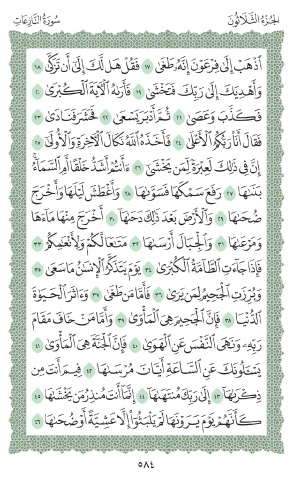 الجزء الثلاثون سورة النازعات
ٱذْهَبْ إِلَىٰ فِرْعَوْنَ إِنَّهُۥ طَغَىٰ ١٧ فَقُلْ هَل لَّكَ إِلَىٰٓ أَن تَزَكَّىٰ ١٨
وَأَهْدِيَكَ إِلَىٰ رَبِّكَ فَتَخْشَىٰ ١٩ فَأَرَىٰهُ ٱلْـَٔايَةَ ٱلْكُبْرَىٰ ٢٠
فَكَذَّبَ وَعَصَىٰ ٢١ ثُمَّ أَدْبَرَ يَسْعَىٰ ٢٢ فَحَشَرَ فَنَادَىٰ ٢٣
فَقَالَ أَنَا۠ رَبُّكُمُ ٱلْأَعْلَىٰ ٢٤ فَأَخَذَهُ ٱللَّهُ نَكَالَ ٱلْـَٔاخِرَةِ وَٱلْأُولَىٰٓ ٢٥
إِنَّ فِى ذَٰلِكَ لَعِبْرَةً لِّمَن يَخْشَىٰٓ ٢٦ ءَأَنتُمْ أَشَدُّ خَلْقًا أَمِ ٱلسَّمَآءُ ۚ
بَنَىٰهَا ٢٧ رَفَعَ سَمْكَهَا فَسَوَّىٰهَا ٢٨ وَأَغْطَشَ لَيْلَهَا وَأَخْرَجَ
ضُحَىٰهَا ٢٩ وَٱلْأَرْضَ بَعْدَ ذَٰلِكَ دَحَىٰهَآ ٣٠ أَخْرَجَ مِنْهَا مَآءَهَا
وَمَرْعَىٰهَا ٣١ وَٱلْجِبَالَ أَرْسَىٰهَا ٣٢ مَتَـٰعًا لَّكُمْ وَلِأَنْعَـٰمِكُمْ ٣٣
فَإِذَا جَآءَتِ ٱلطَّآمَّةُ ٱلْكُبْرَىٰ ٣٤ يَوْمَ يَتَذَكَّرُ ٱلْإِنسَـٰنُ مَا سَعَىٰ ٣٥
وَبُرِّزَتِ ٱلْجَحِيمُ لِمَن يَرَىٰ ٣٦ فَأَمَّا مَن طَغَىٰ ٣٧ وَءَاثَرَ ٱلْحَيَوٰةَ
ٱلدُّنْيَا ٣٨ فَإِنَّ ٱلْجَحِيمَ هِىَ ٱلْمَأْوَىٰ ٣٩ وَأَمَّا مَنْ خَافَ مَقَامَ
رَبِّهِۦ وَنَهَى ٱلنَّفْسَ عَنِ ٱلْهَوَىٰ ٤٠ فَإِنَّ ٱلْجَنَّةَ هِىَ ٱلْمَأْوَىٰ ٤١
يَسْـَٔلُونَكَ عَنِ ٱلسَّاعَةِ أَيَّانَ مُرْسَىٰهَا ٤٢ فِيمَ أَنتَ مِن
ذِكْرَىٰهَآ ٤٣ إِلَىٰ رَبِّكَ مُنتَهَىٰهَآ ٤٤ إِنَّمَآ أَنتَ مُنذِرُ مَن يَخْشَىٰهَا ٤٥
كَأَنَّهُمْ يَوْمَ يَرَوْنَهَا لَمْ يَلْبَثُوٓا۟ إِلَّا عَشِيَّةً أَوْ ضُحَىٰهَا ٤٦
٥٨٤